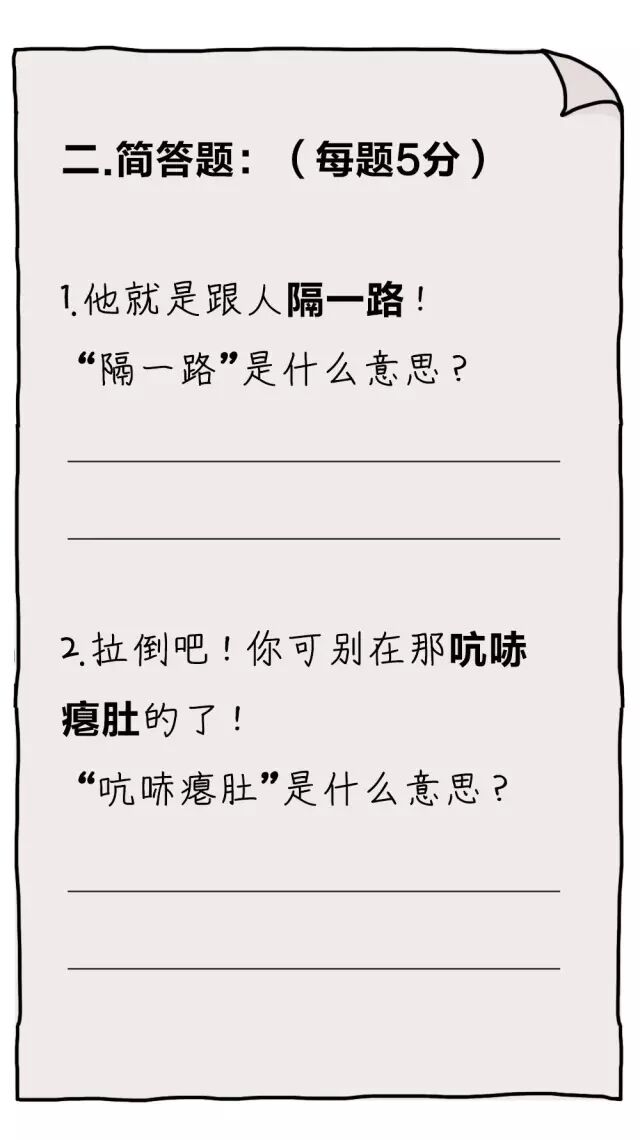 二.简答题：（每题5分）
1.他就是跟人隔一路！
“隔一路”是什么意思？
2.拉倒吧！你可别在那吭哧
瘪肚的了！
“吭哧瘪肚”是什么意思？